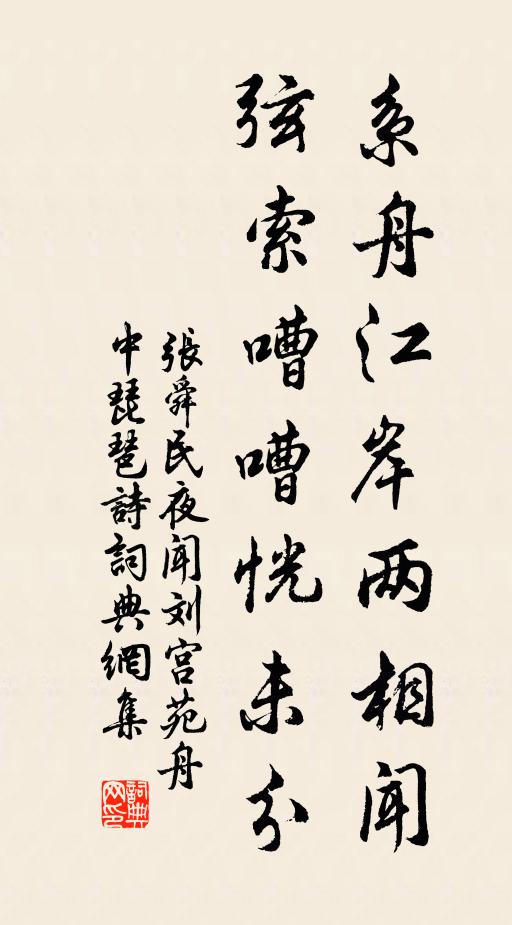 系舟江岸两相闻
弦索嘈嘈恍未分
張舜民夜闻刘宫苑舟
中琵琶詩詞典網集
詞典
网印